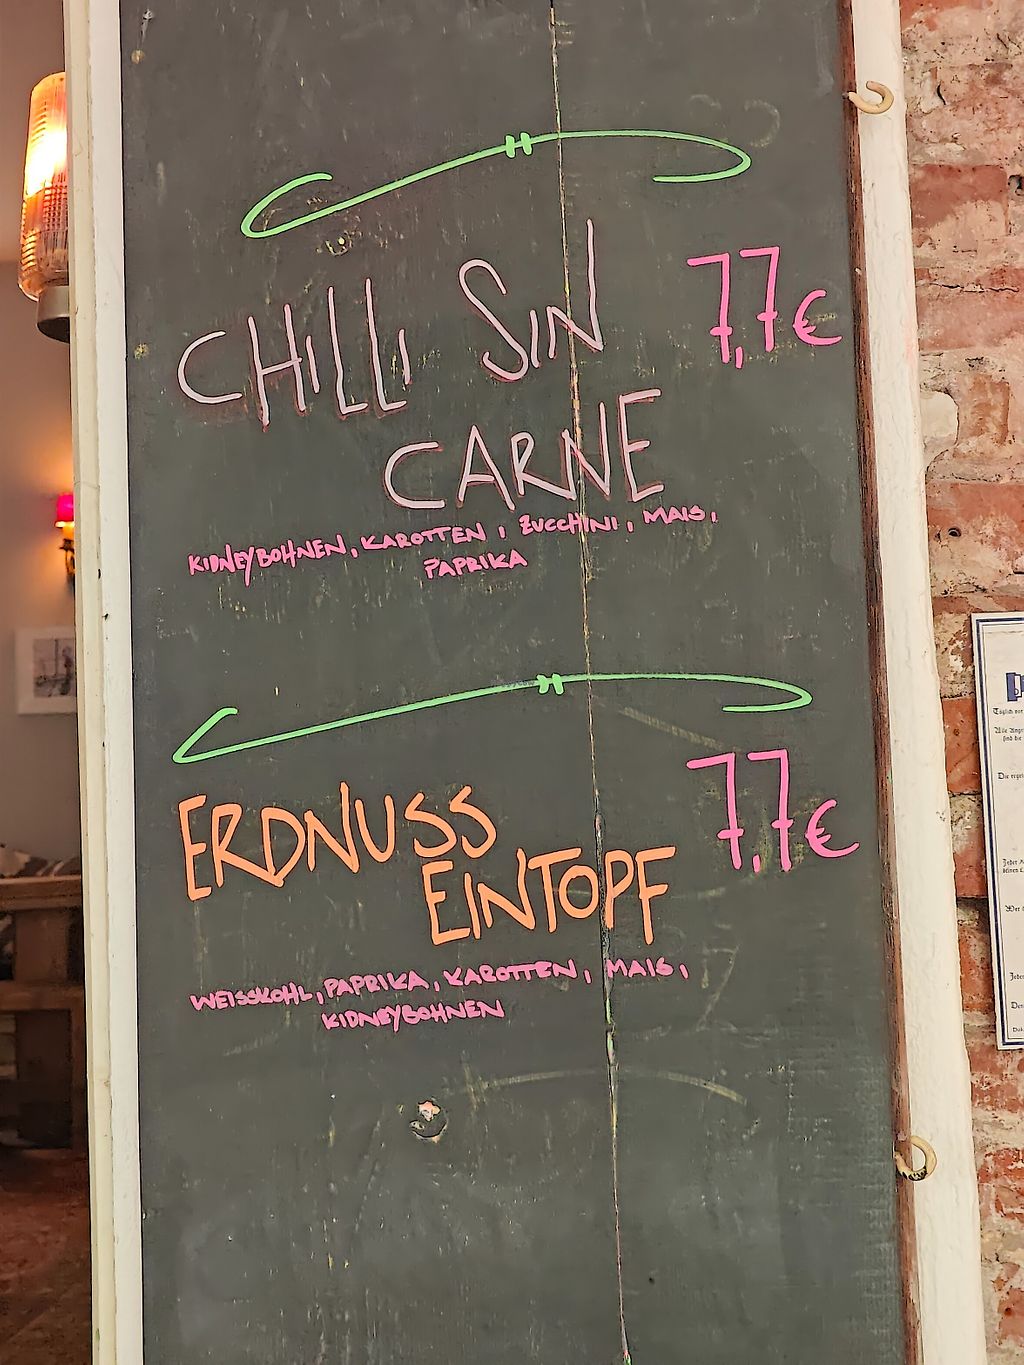 CHILLI SIN
7,7€
CARNE
KIDNEYBOHNEN, KAROTTEN, ZUCCHINI, MAIS,
PAPRIKA
ERDNUSS
7,7€
EINTOPF
WEISSKOHL, PAPRIKA, KAROTTEN, MAIS,
KIDNEYBOHNEN